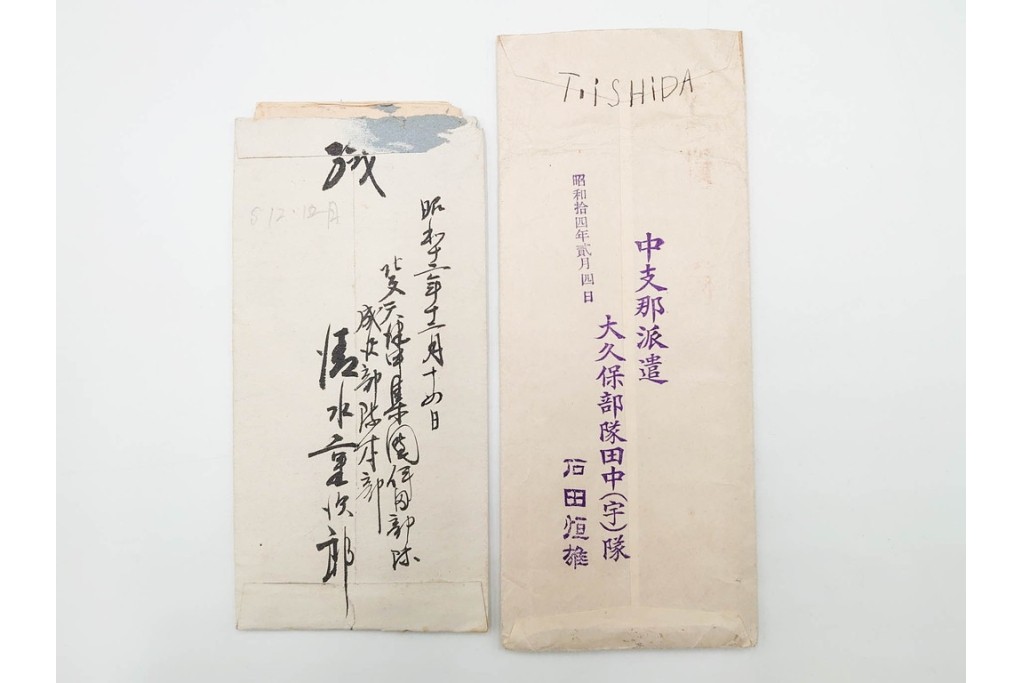 緘
S12.12月
昭和十二年十二月十四日
集團伊田部隊
部隊本部
清水重次郎
T.ISHIDA
昭和拾四年貳月四日
中支那派遣
大久保部隊田中(宇)隊
石田恒雄